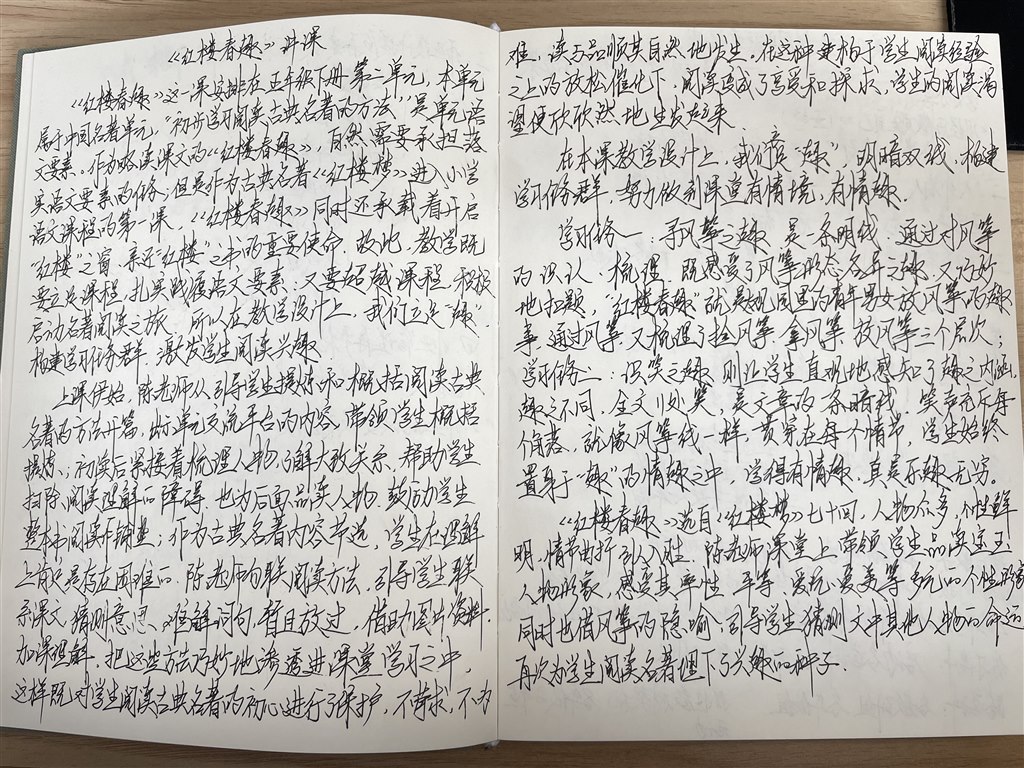 《红楼春趣》评课
《红楼春趣》这一课安排在五年级下册第二单元，本单元
属于中国名著单元，“初步学习阅读古典名著的方法”是单元语
文要素。作为略读课文的《红楼春趣》，自然需要承担落
实语文要素的任务，但是作为古典名著《红楼梦》进入小学
语文课程的第一课，《红楼春趣》同时还承载着开启
“红楼”之窗，亲近“红楼”之书的重要使命。故此，教学既
要立足课程，扎实战展语文要素；又要超越课程，积极
启动名著阅读之旅。所以在教学设计上，我们立足“趣”，
构建学习任务群，激发学生阅读兴趣。
上课伊始，陈老师从引导学生提炼和概括阅读古典
名著的方法开篇，出示单元交流平台的内容，带领学生概括
提炼，初读后紧接着梳理人物，了解大致关系，帮助学生
扫除阅读理解的障碍，也为后面品读人物，鼓励学生
整本书阅读作铺垫；作为古典名著内容节选，学生在理解
上肯定是存在困难的。陈老师勾联阅读方法，引导学生联
系课文，猜测意思，难解词句，暂且放过，借助图片资料，
加深理解。把这些方法巧妙地渗透进课堂学习之中，
这样既对学生阅读古典名著的初心进行了保护，不苛求，不为
难，读与品顺其自然地发生。在这种建构于学生阅读经验
之上的放松催化下，阅读变成了享受和探求，学生的阅读渴
望便欣欣然地生发起来。
在本课教学设计上，我们定“趣”明暗双线，构建
学习任务群，努力做到课堂有情境，有情趣。
学习任务一：寻风筝之趣，是一条明线，通过对风筝
的识认、梳理，既感受了风筝形态各异之趣，又巧妙
地扣题，“红楼春趣”就是大观园里的青年男女放风筝的趣
事，通过风筝又梳理了捡风筝、拿风筝、放风筝三个层次；
学习任务二：识笑之趣，则让学生直观地感知了趣之内涵，
趣之不同，全文11处笑，是文章的一条暗线，笑声充斥每个
角落，就像风筝线一样，贯穿在每个情节，学生始终
置身于“趣”的情趣之中，学得有情趣，真是乐趣无穷。
《红楼春趣》选自《红楼梦》七十回，人物众多，个性鲜
明，情节曲折，引人入胜。陈老师课堂上带领学生品读宝玉
人物形象，感受其率性、平等、爱玩、爱美等多元的个性形象
同时也借风筝的隐喻，引导学生猜测文中其他人物的命运，
再次为学生阅读名著埋下了兴趣的种子。